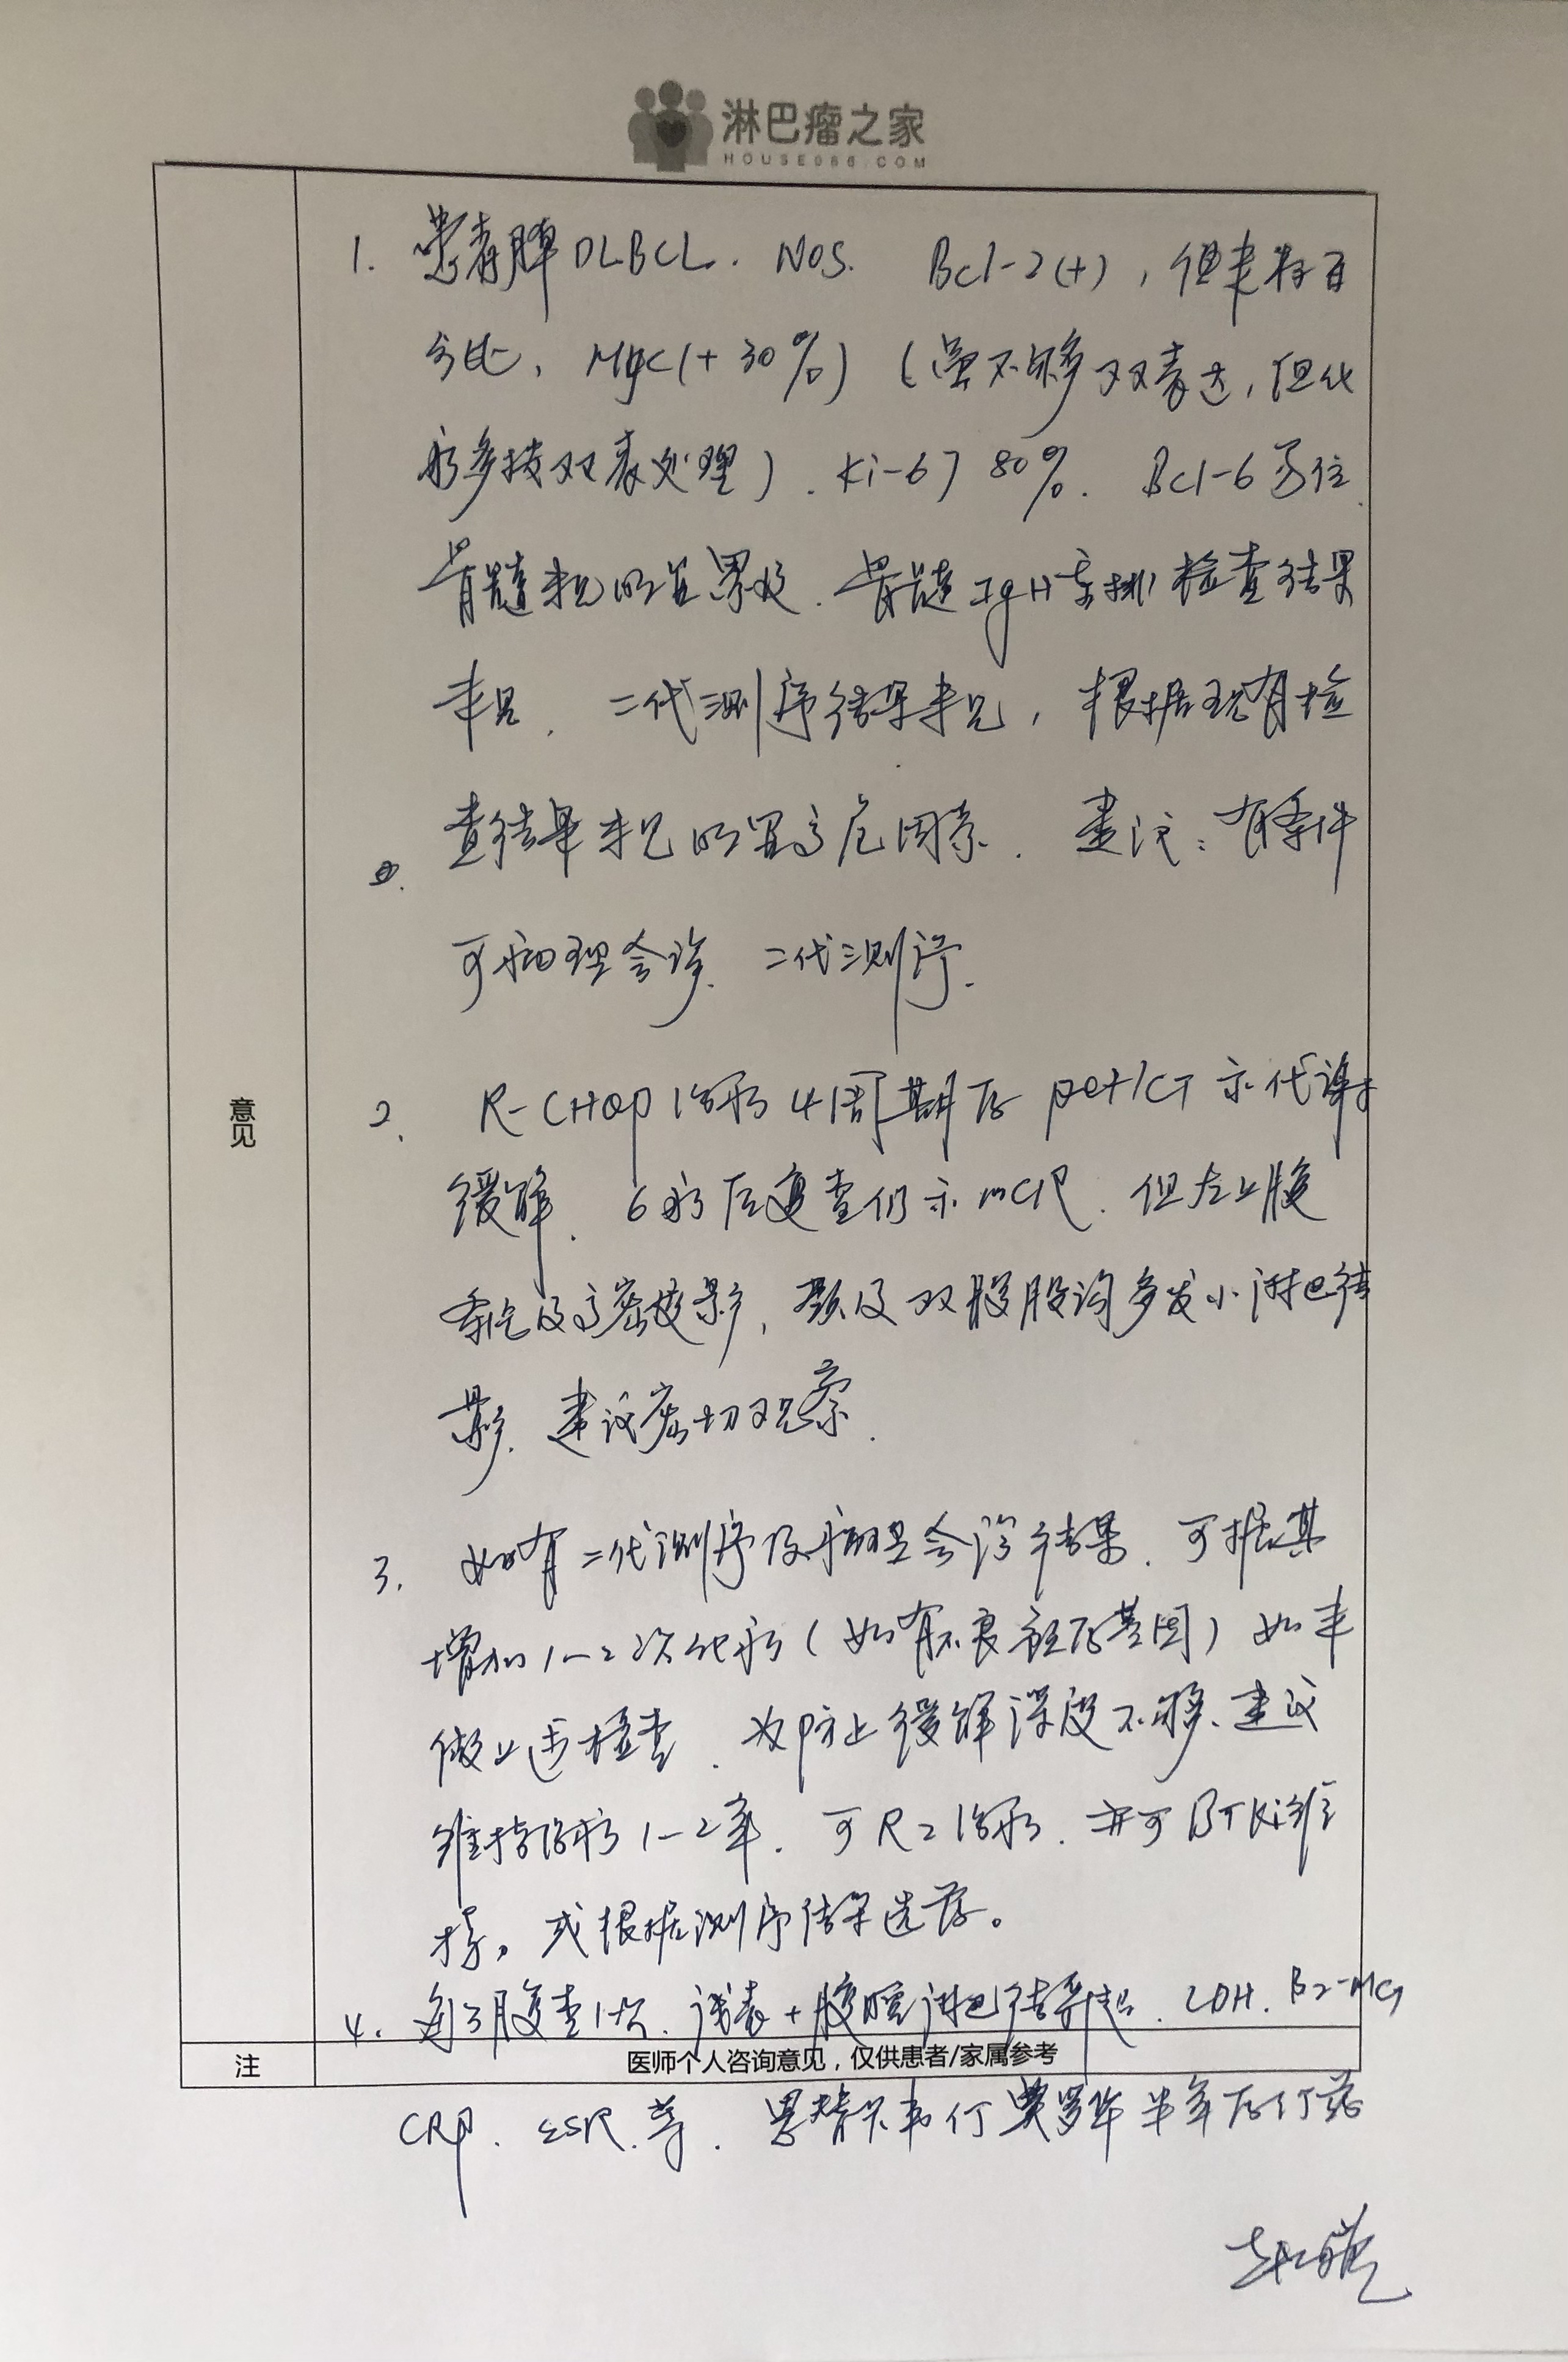 淋巴瘤之家
HOUSE086.COM
意见
1. 患者脾DLBCL. NOS. Bcl-2(+), 但未标百
分比, Myc(+30%) (虽不够双表达, 但化
疗多按双表处理). Ki-67 80%. Bcl-6易位.
骨髓未见明显累及. 骨髓IgH重排检查结果
未见. 二代测序结果未见, 根据现有检
查结果未见明显高危因素. 建议: 有条件
可病理会诊. 二代测序.
2. R-CHOP治疗4周期后 pet/CT 示代谢
缓解. 6疗后复查仍示mCR. 但左上腹
高密度影, 颈及双腹股沟多发小淋巴结
影. 建议密切观察.
3. 如有二代测序及病理会诊结果. 可据其
增加1-2次化疗(如有不良预后基因) 如未
做上述检查. 为防止缓解深度不够、建议
维持治疗1-2年. 可R2治疗. 亦可BTKi维
持。或根据测序结果选药。
4. 每3月复查1次. 浅表+腹腔淋巴结彩超. LDH. β2-MG
注
医师个人咨询意见,仅供患者/家属参考
CRP. ESR.等. 恩替卡韦停美罗华半年后停药